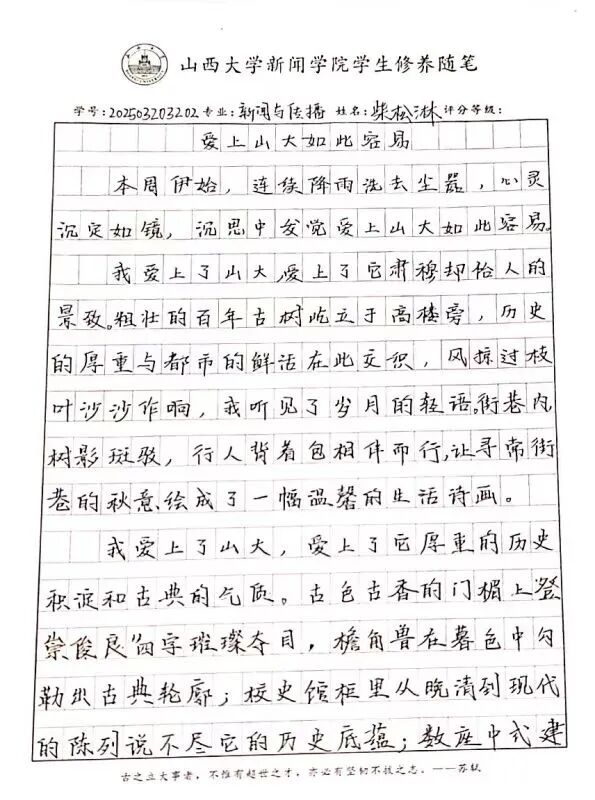 山西大学新闻学院学生修养随笔
学号:202503203202 专业:新闻与传播 姓名:柴松淋 评分等级:
爱上山大如此容易
本周伊始，连续降雨洗去尘嚣，心灵
沉定如镜，沉思中发觉爱上山大如此容易。
我爱上了山大，爱上了它肃穆却怡人的
景致。粗壮的百年古树屹立于高楼旁，历史
的厚重与都市的鲜活在此交织，风掠过枝
叶沙沙作响，我听见了岁月的轻语。街巷内
树影斑驳，行人背着包相伴而行，让寻常街
巷的秋意绘成了一幅温馨的生活诗画。
我爱上了山大，爱上了它厚重的历史
积淀和古典的气质。古色古香的门楣上“登
崇俊良”四字璀璨夺目，檐角兽在暮色中勾
勒出古典轮廓；校史馆柜里从晚清到现代
的陈列说不尽它的历史底蕴；数座中式建
古之立大事者，不惟有超世之才，亦必有坚韧不拔之志。——苏轼